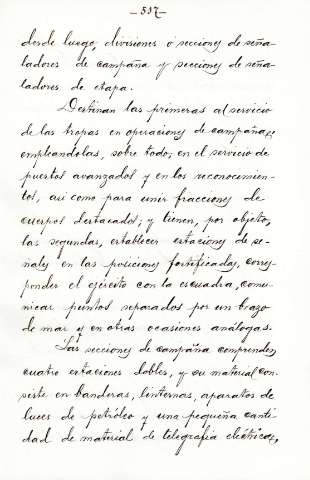 - 537 -
desde luego, divisiones ó secciones de seña-
ladores de campaña y secciones de seña-
ladores de etapa.
Destinan las primeras al servicio
de las tropas en operaciones de campaña,
empleandolas, sobre todo, en el servicio de
puestos avanzados y en los reconocimien-
tos, asi como para unir fracciones de
cuerpos destacados; y tienen, por objeto,
las segundas, establecer estaciones de se-
ñales en las posiciones fortificadas, corres-
ponder el ejército con la escuadra, comu-
nicar puntos separados por un brazo
de mar y en otras ocasiones análogas.
Las secciones de campaña comprenden
cuatro estaciones dobles, y su material con-
siste en banderas, linternas, aparatos de
luces de petróleo y una pequeña canti-
dad de material de telegrafia eléctrica,